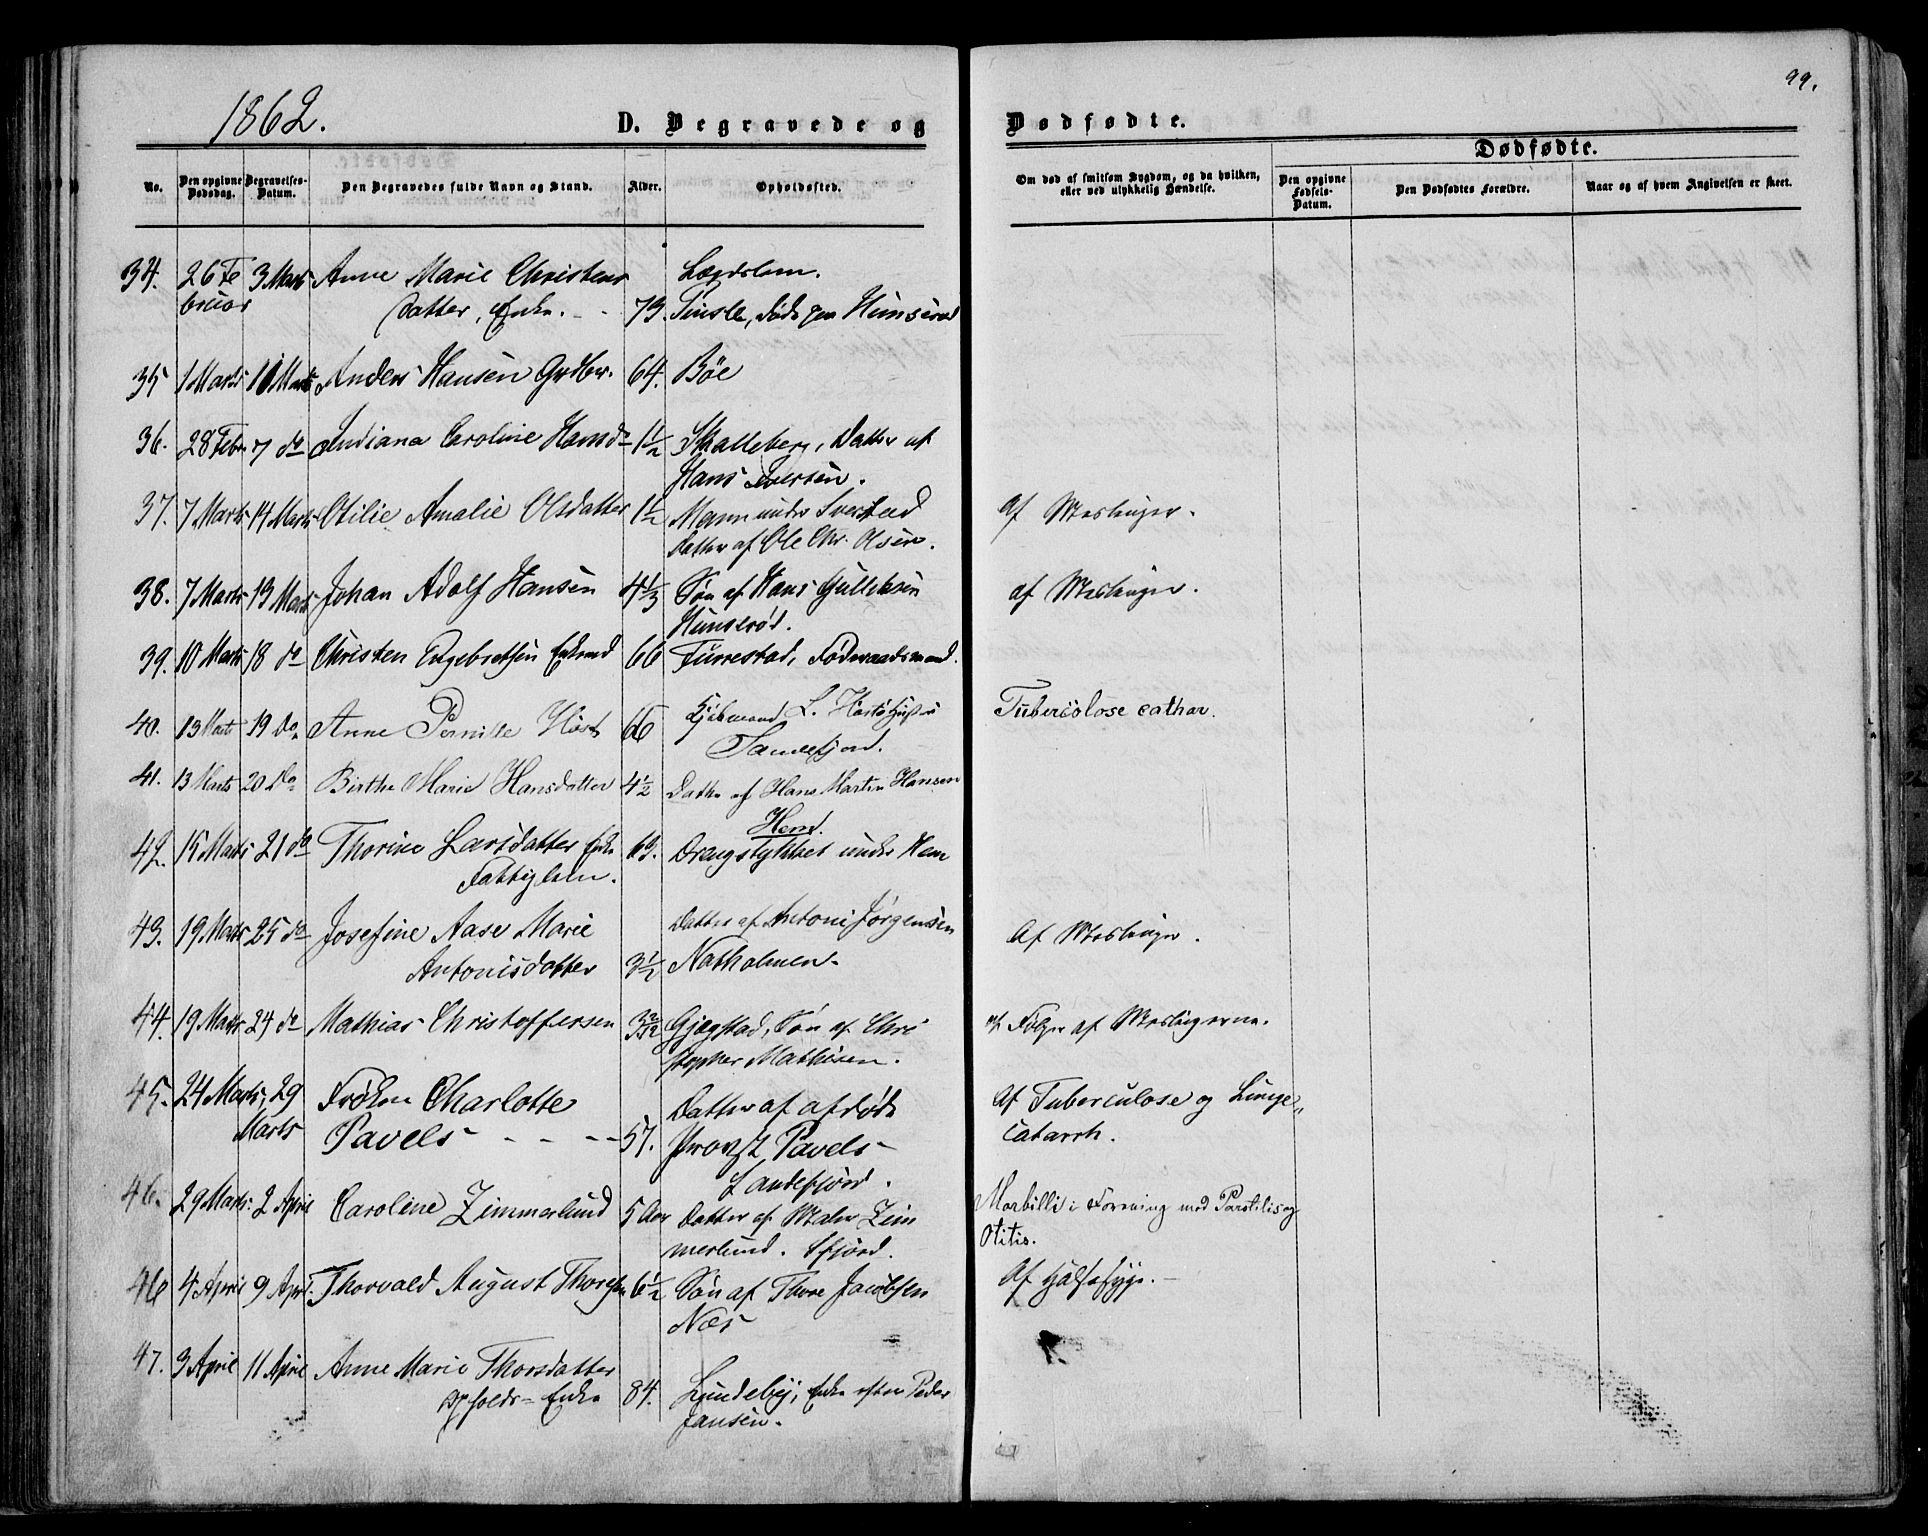 1862.
D. Begravede og Dødfødte.
99.
Dødfødte.
No.
Den opgivne Dødsdag.
Begravelses-Datum.
Den Begravedes fulde Navn og Stand.
Alder.
Opholdssted.
Om død af smitsom Sygdom, og da hvilken, eller ved ulykkelig Hændelse.
Den opgivne Fødsels-Datum.
Den Dødfødtes Forældre.
Naar og af hvem Angivelsen er skeet.
34. 26 Fe 3 Marts Anne Marie Christens Lægdslem.
bruar datter, Enke. 73. født paa Hunserød
35 1 Marts 10 Marts Anders Hansen Grdbr. 64. Bøe
36. 28 Febr 7 do Indiana Caroline Hansd 1½ Skalleberg, Datter af
Hans Iversen.
37. 7 Marts 14 Marts Otilie Amalie Olsdatter 1½ under Datter af Ole Chr. Olsen. Af Meslinger.
38. 7 Marts 13 Marts Johan Adolf Hansen 4⅓ Søn af Hans Gulliksen af Meslinger.
Hunserød.
39. 10 Marts 18 do Christen Engebretsen Enkmd 66 Furrestad, Føderaadsmand.
40. 13 Marts 19 Do Anne Pernille Høst 66 Kjøbmand L. Høsts Tuberculose cathar.
Sandefjord.
41. 13 Marts 20 Do Birthe Marie Hansdatter 4½ Datter af Hans Martin Hansen
Hem.
42. 15 Marts 21 do Thorine Larsdatter Enke 63. Drengstykket under Hem
Fattiglem.
43. 19 Marts 25 do Josefine Aase Marie Datter af Antoni Jørgensen Af Meslinger.
Antonisdatter 3½ Natholmen
44. 19 Marts 24 do Mathias Christoffersen 3 2/12 Gjægstad, Søn af Chri af Følger af Meslingerne.
stopher Mathisen.
45. 24 Marts 29 Frøken Charlotte Datter af afdøde Af Tuberculose og Lunge
Marts Pavels 57. Provst Pavels catarrh.
Sandefjord.
46. 29 Marts 2 April Caroline Zimmerlund 5 Aar Datter af Maler Zim Morbilli i Forening med Parotitis og
merlund. Sfjord. Otitis.
46 4 April 9 April. Thorvald August Thoresen 6½ Søn af Thore Jacobsen Af Halssyge.
Næs
47. 3 April 11 April Anne Marie Thorsdatter
Opholds-Enke 84. Lundeby, Enke efter Peder
Jansen.